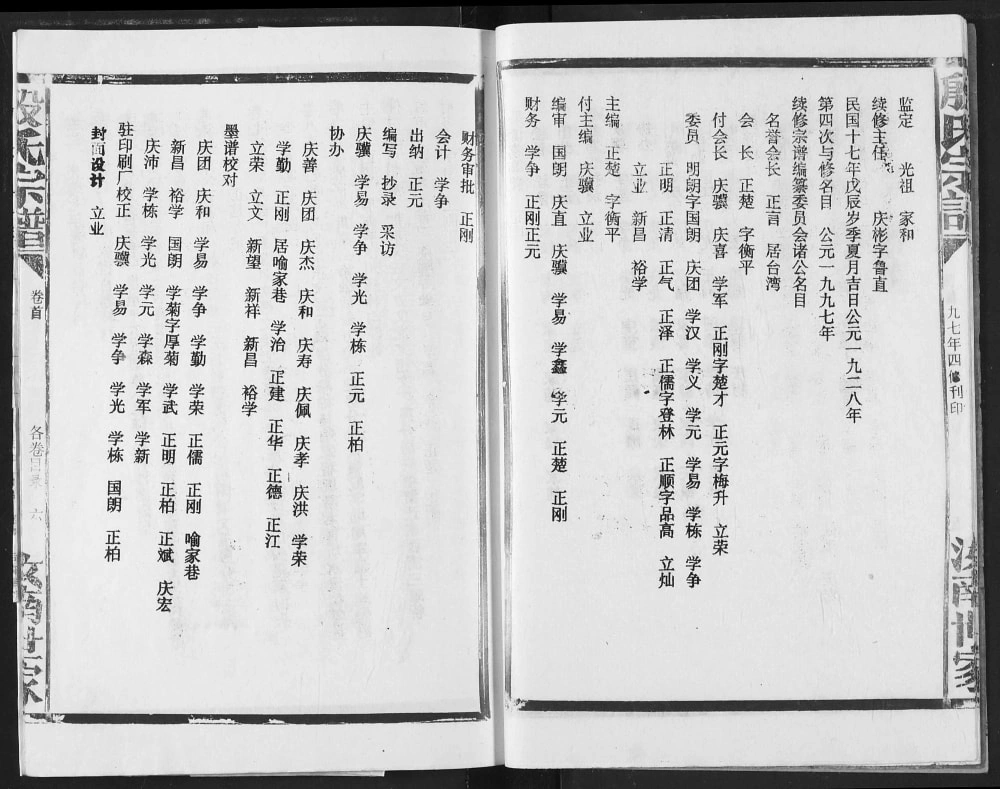 殷氏宗谱
九七年四修刊印
汝南世家
监定 光祖 家和
续修主任 庆彬字鲁直
民国十七年戊辰岁季夏月吉日公元一九二八年
第四次与修名目 公元一九九七年
续修宗谱编纂委员会诸公名目
名誉会长 正言 居台湾
会长 正楚 字衡平
付会长 庆骥 庆喜 学军 正刚字楚才 正元字梅升 立荣
委员 明朗字国朗 庆团 学汉 学义 学元 学易 学栋 学争
正明 正清 正气 正泽 正儒字登林 正顺字品高 立灿
立业 新昌 裕学
主编 正楚 字衡平
付主编 庆骥 立业
编审 国朗 庆直 庆骥 学易 学鑫 学元 正楚 正刚
财务 学争 正刚正元
财务审批 正刚
会计 学争
出纳 正元
编写 抄录 采访
庆骥 学易 学争 学光 学栋 正元 正柏
协办
庆善 庆团 庆杰 庆和 庆寿 庆佩 庆孝 庆洪 学荣
学勤 正刚 居喻家巷 学治 正建 正华 正德 正江
立荣 立文 新望 新祥 新昌 裕学
墨谱校对
庆团 庆和 学易 学争 学勤 学荣 正儒 正刚 喻家巷
新昌 裕学 国朗 学菊字厚菊 学武 正明 正柏 正斌 庆宏
庆沛 学栋 学光 学元 学森 学军 学新
驻印刷厂校正 庆骥 学易 学争 学光 学栋 国朗 正柏
封面设计 立业
殷氏宗谱
卷首
各卷目录 六
汝南世家